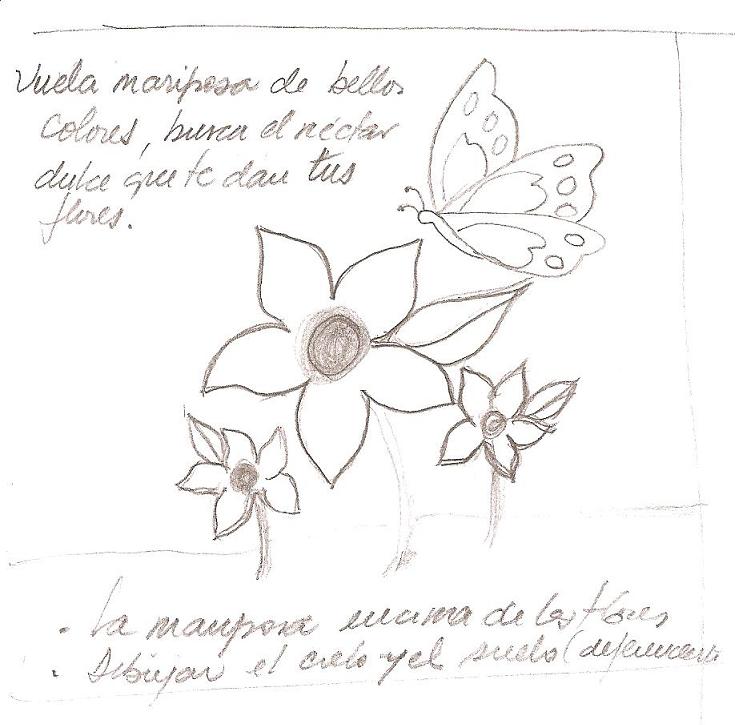 Vuela mariposa de bellos
colores, busca el néctar
dulce que te dan tus
flores.
- La mariposa encima de las flores
- Dibujar el cielo y el suelo (